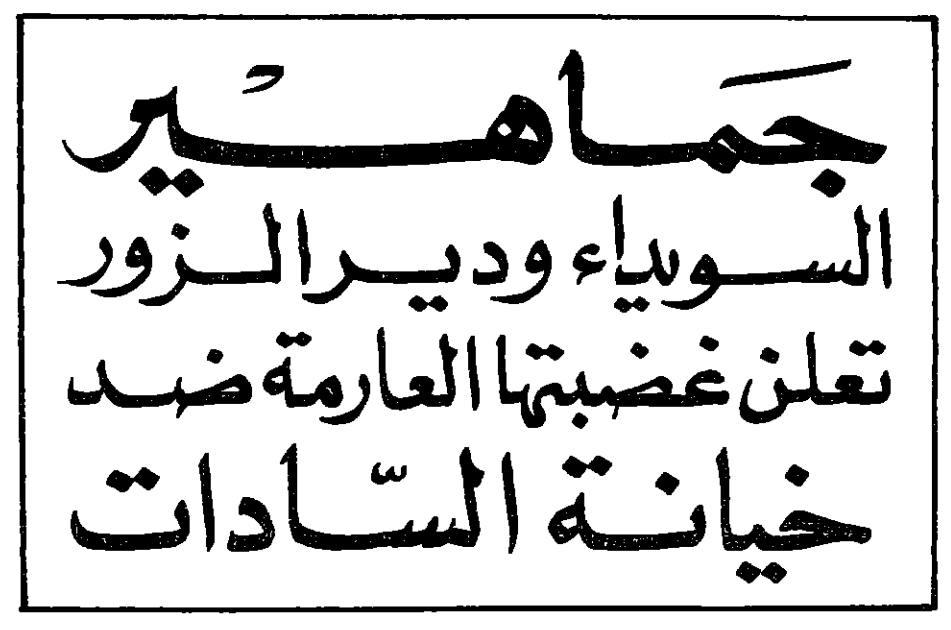 جماهير
السويداء ودير الزور
تعلن غضبتها العارمة ضد
خيانة السّادات